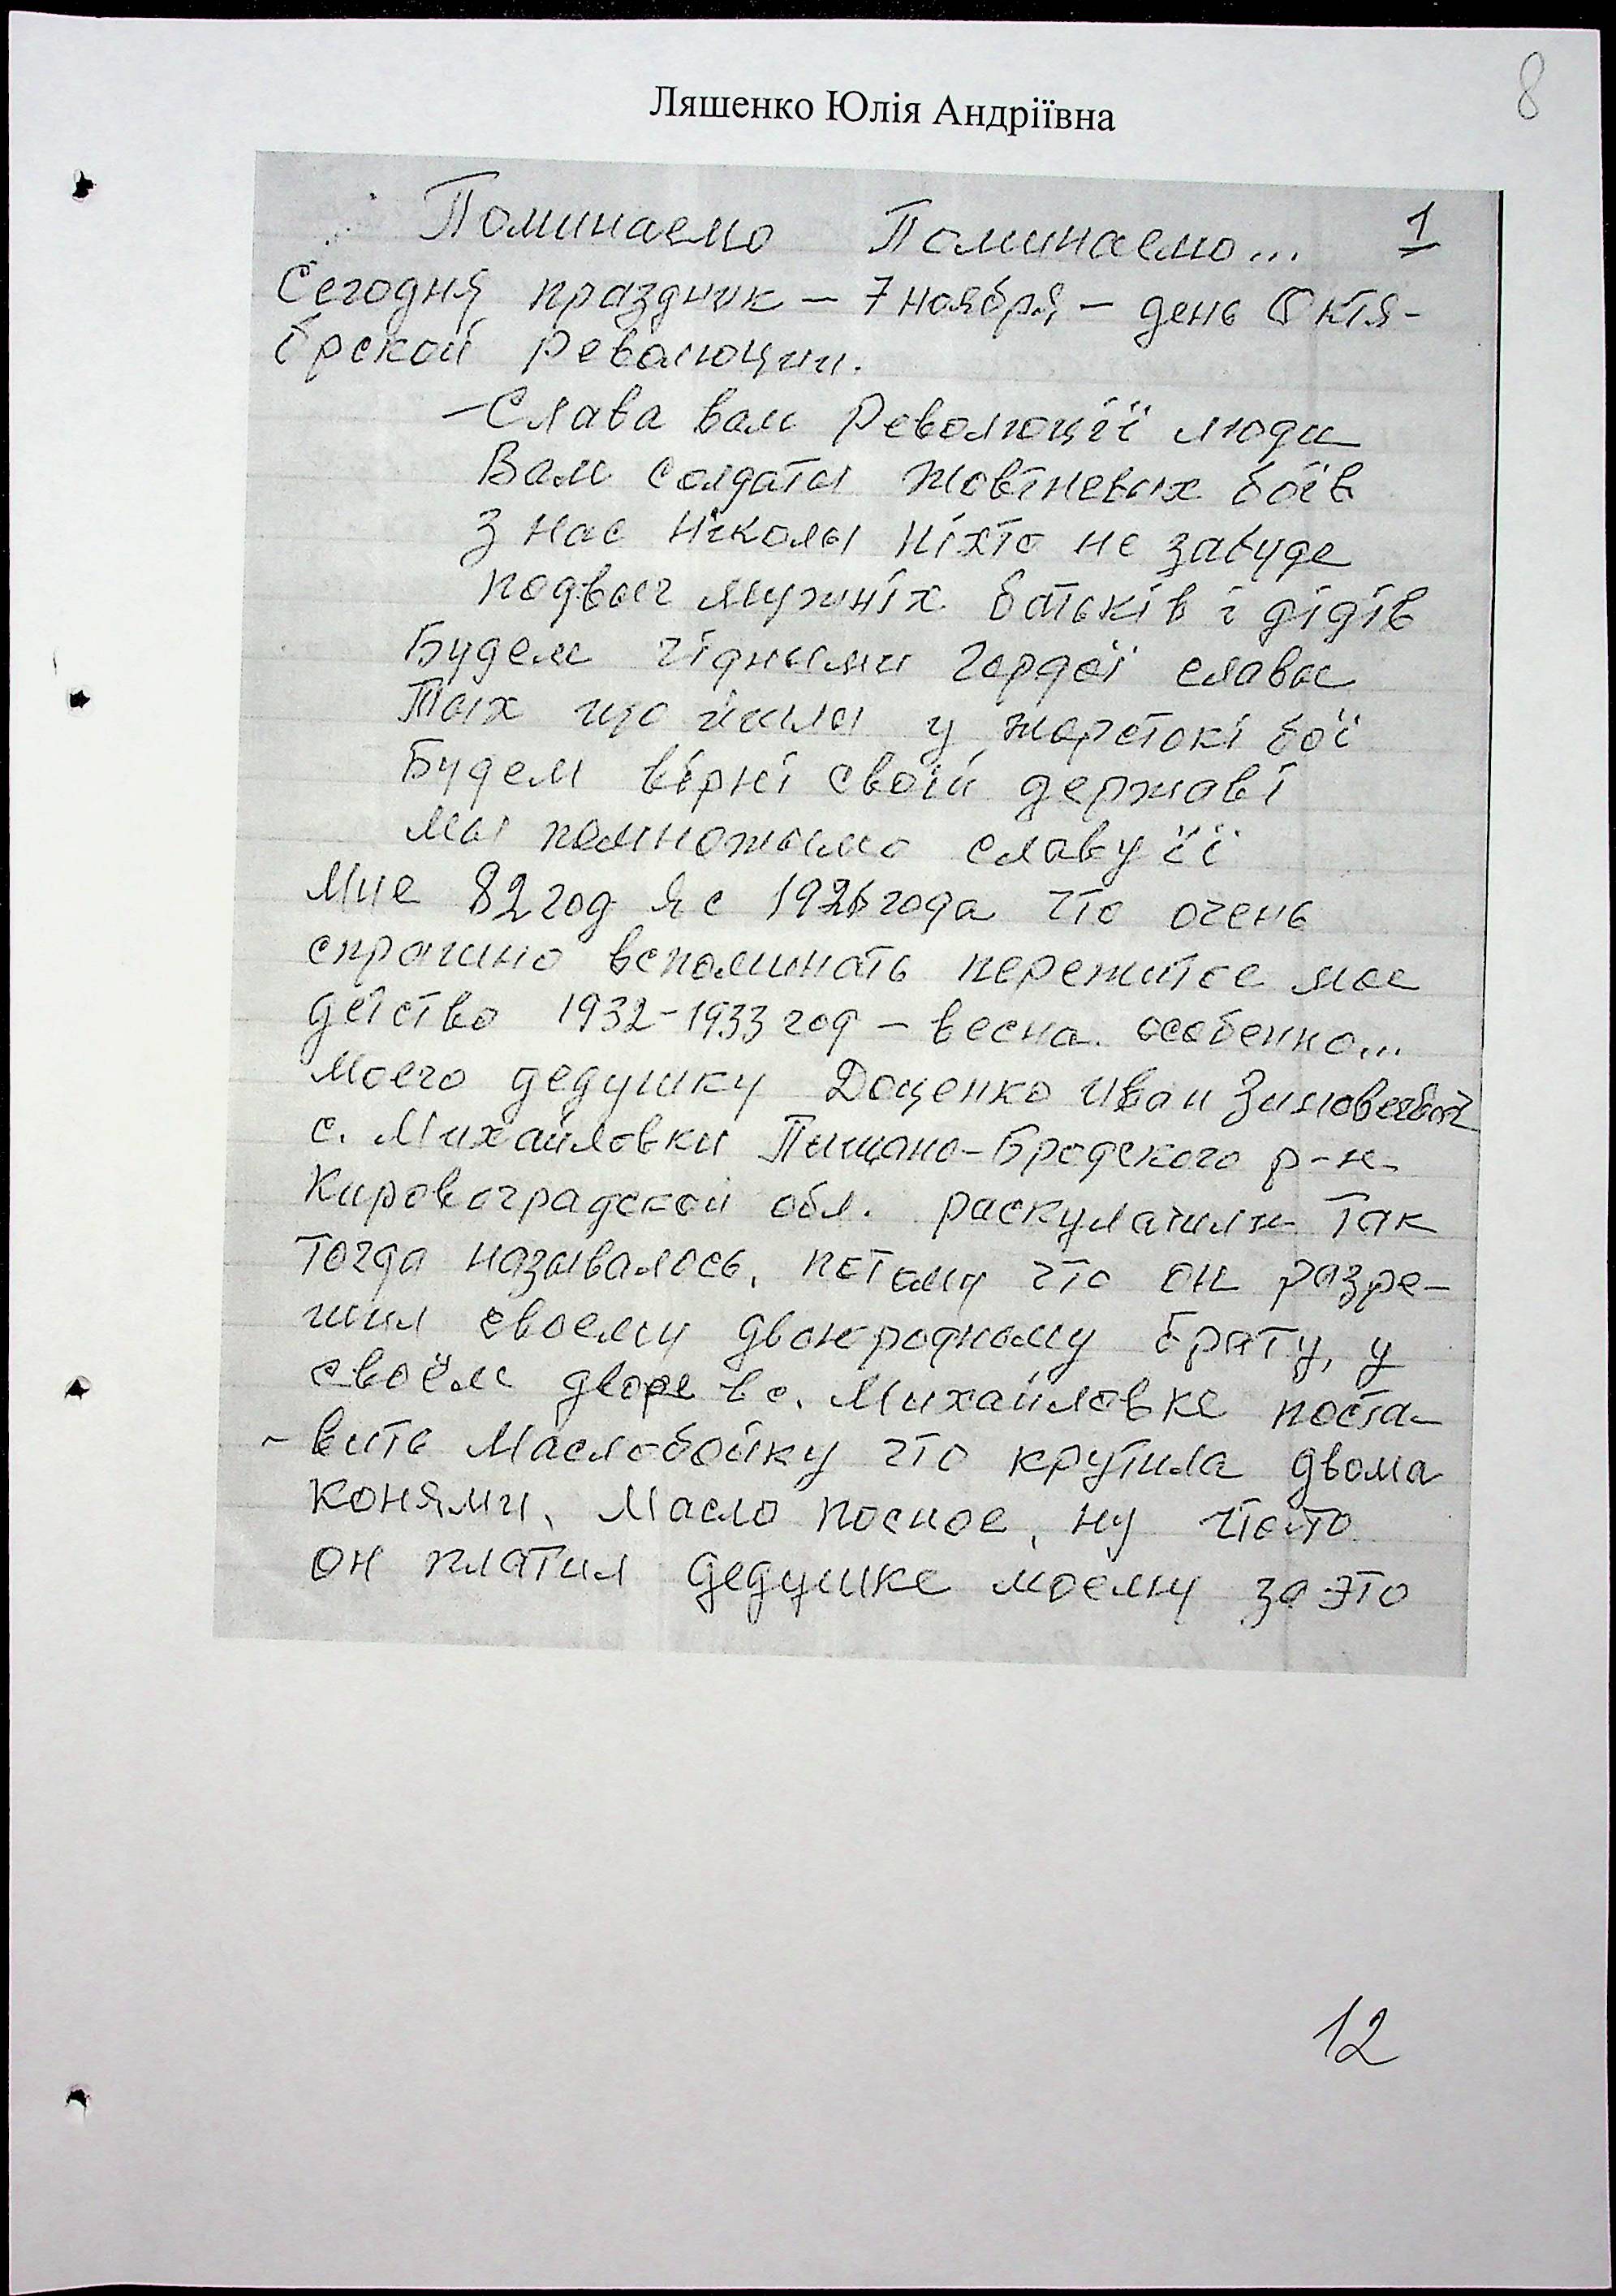 8
Ляшенко Юлія Андріївна
Поминаемо Поминаемо... 1
Сегодня праздник – 7 ноября, – день Октя-
брской Революции.
– Слава вам Революції люди
Вам солдаты Жовтневых боїв
З нас ніколы ніхто не забуде
подвыг мужніх батьків і дідів
Будем гідными гордої славы
Тых що йшлы у жорстокі бої
Будем вірні своїй державі
Мы помножымо славу її
Мне 82 год я с 1926 года что очень
страшно вспоминать пережитое мое
детство 1932-1933 год – весна особенно...
Моего дедушку Доценко Иван
с. Михайловки Пищано-Бродского р-н
Кировоградской обл. раскулачили так
тогда называлось, потому что он разре-
шил своему двоюродному брату, у
своём дворе в с. Михайловке поста-
- вить Маслобойку что крутила двома
конями, Масло посное, ну что-то
он платил дедушке моему за это
12